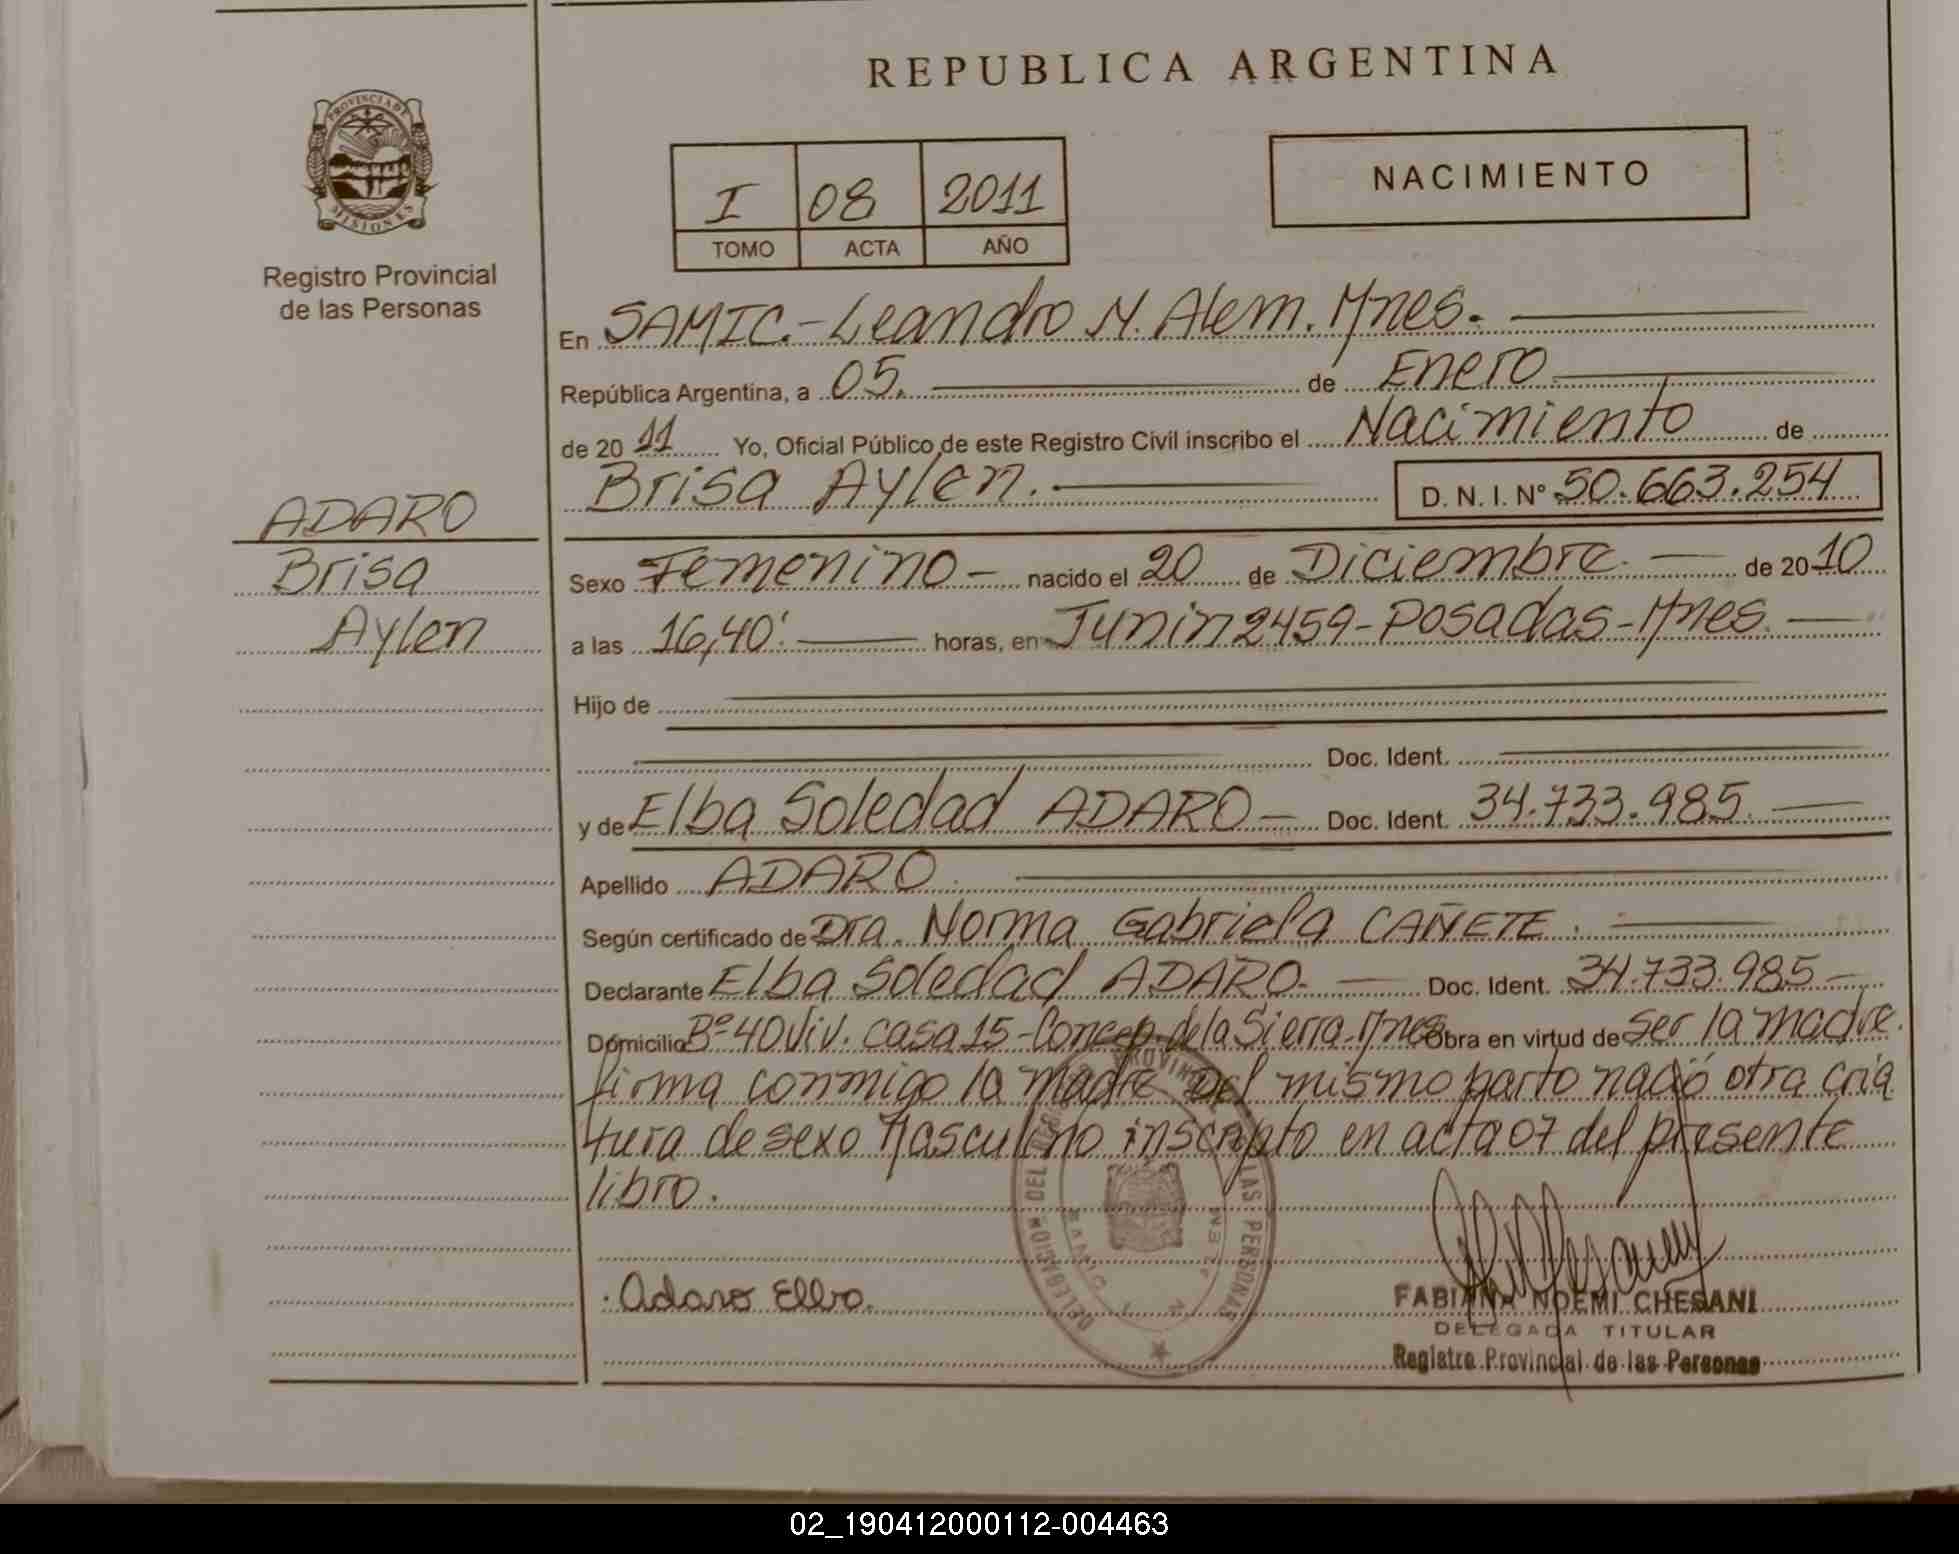 REPUBLICA ARGENTINA
PROVINCIA DE MISIONES
Registro Provincial
de las Personas
I 08 2011
TOMO ACTA AÑO
NACIMIENTO
En SAMIC.- Leandro N. Alem. Mnes.
República Argentina, a 05. de Enero
de 2011 Yo, Oficial Público de este Registro Civil inscribo el Nacimiento de
Brisa Aylen. D. N. I. Nº 50.663.254
ADARO
Brisa
Aylen
Sexo Femenino - nacido el 20 de Diciembre. de 2010
a las 16,40' horas, en Junin 2459 - Posadas - Mnes.
Hijo de
Doc. Ident.
y de Elba Soledad ADARO - Doc. Ident. 34.733.985
Apellido ADARO
Según certificado de Dra. Norma Gabriela CAÑETE.
Declarante Elba Soledad ADARO. Doc. Ident. 34.733.985
Domicilio Bº 40 Viv. Casa 15 - Concep. de la Sierra. Mnes Obra en virtud de ser la madre.
firma conmigo la madre Del mismo parto nació otra cria
tura de sexo Masculino inscripto en acta 07 del presente
libro.
Adaro Elba.
DELEGACION DEL LAS PERSONAS
FABIANA NOEMI CHESANI
DELEGADA TITULAR
Registro Provincial de las Personas
02_190412000112-004463